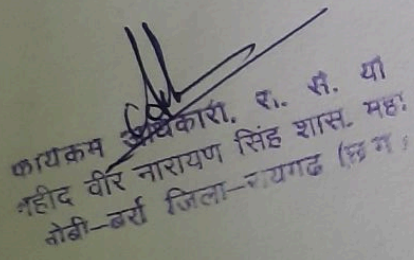 कार्यक्रम अधिकारी, रा. से. यो
शहीद वीर नारायण सिंह शास. महा.
नोबी-बर्रा जिला-रायगढ (छ ग